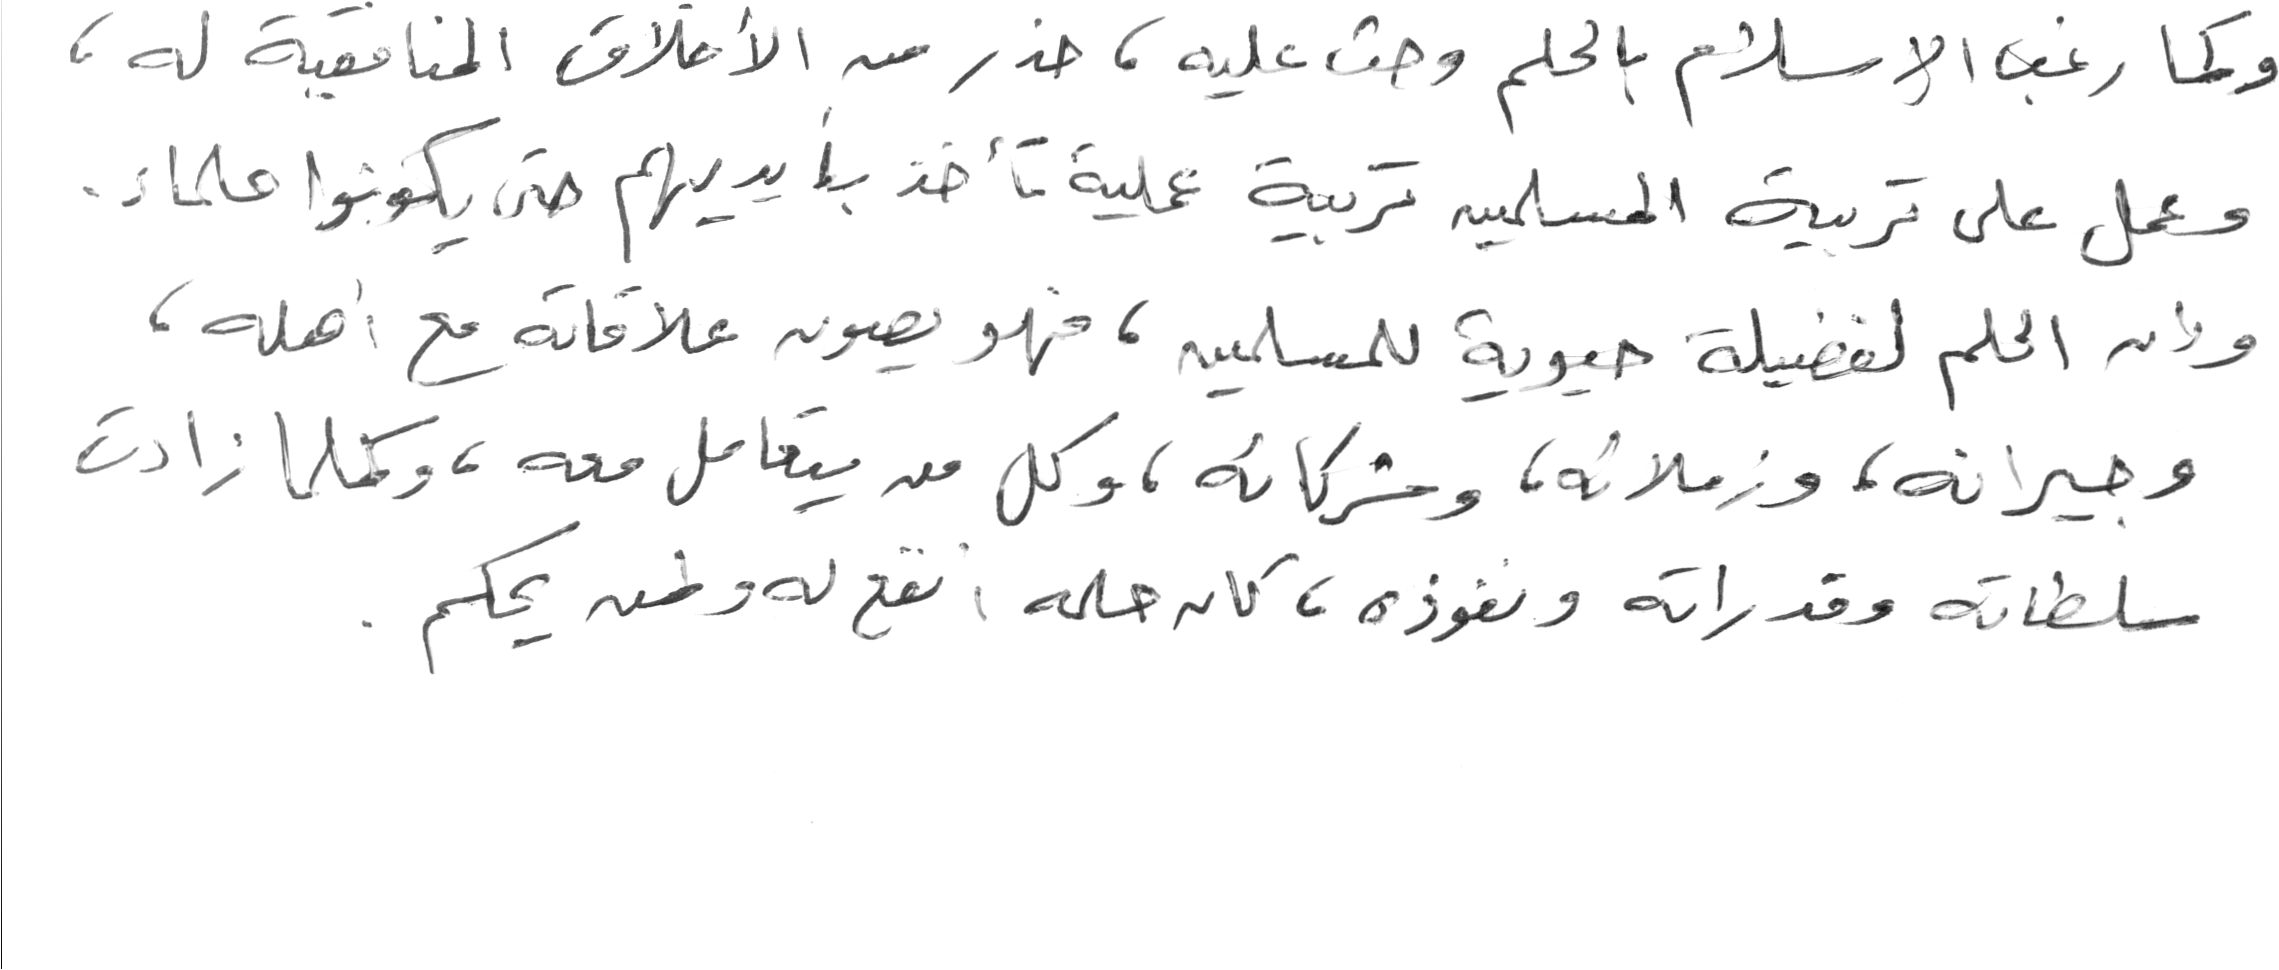 وكما رغب الإسلام بالحلم وحث عليه ، حذر من الأخلاق المنافقية له ،
وعمل على تربية المسلمين تربية عملية تأخذ بأيديهم حتى يكونوا حلماء .
وإن الحلم لفضيلة حيوية للمسلمين ، فهو يصون علاقاته مع أهله ،
وجيرانه ، وزملائه ، وشركائه ، وكل من يتعامل معه ، وكلما زادت
سلطاته وقدراته ونفوذه ، كان حلمه أنفع له ولمن يحكم .